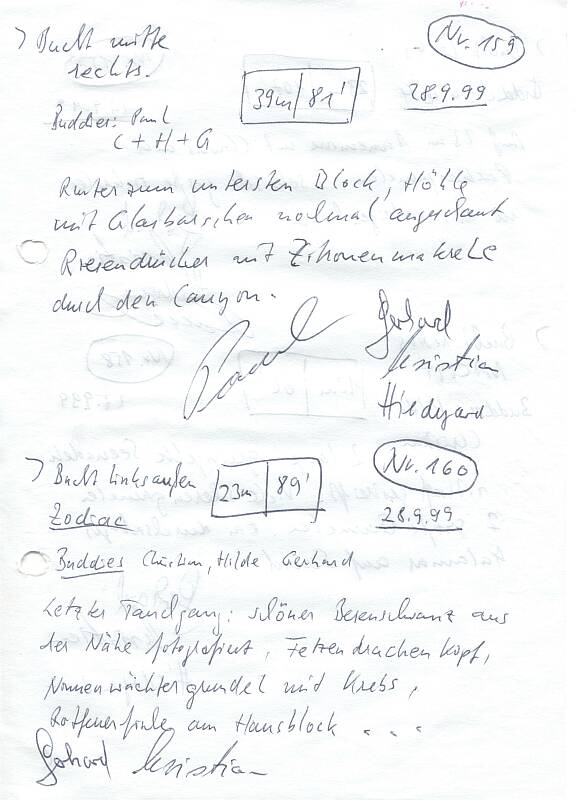 Bucht mitte rechts.
Nr. 159
39m 81'
28.9.99
Buddies: Paul
C + H + G
Runter zum untersten Block, Höhle
mit Glasbarschen nochmal angeschaut
Riesendrücker mit Zitronenmakrele
durch den Canyon.
Paul
Gerhard
Kristian
Hildegard
Bucht linksaußen
23m 89'
Nr. 160
Zodiac
28.9.99
Buddies Christian, Hilde Gerhard
Letzter Tauchgang: schöner Besenschwanz aus
der Nähe fotografiert, Fetzendrachenkopf,
Nonnenwächtergrundel mit Krebs,
Rotfeuerfische am Hausblock . . .
Gerhard Kristian